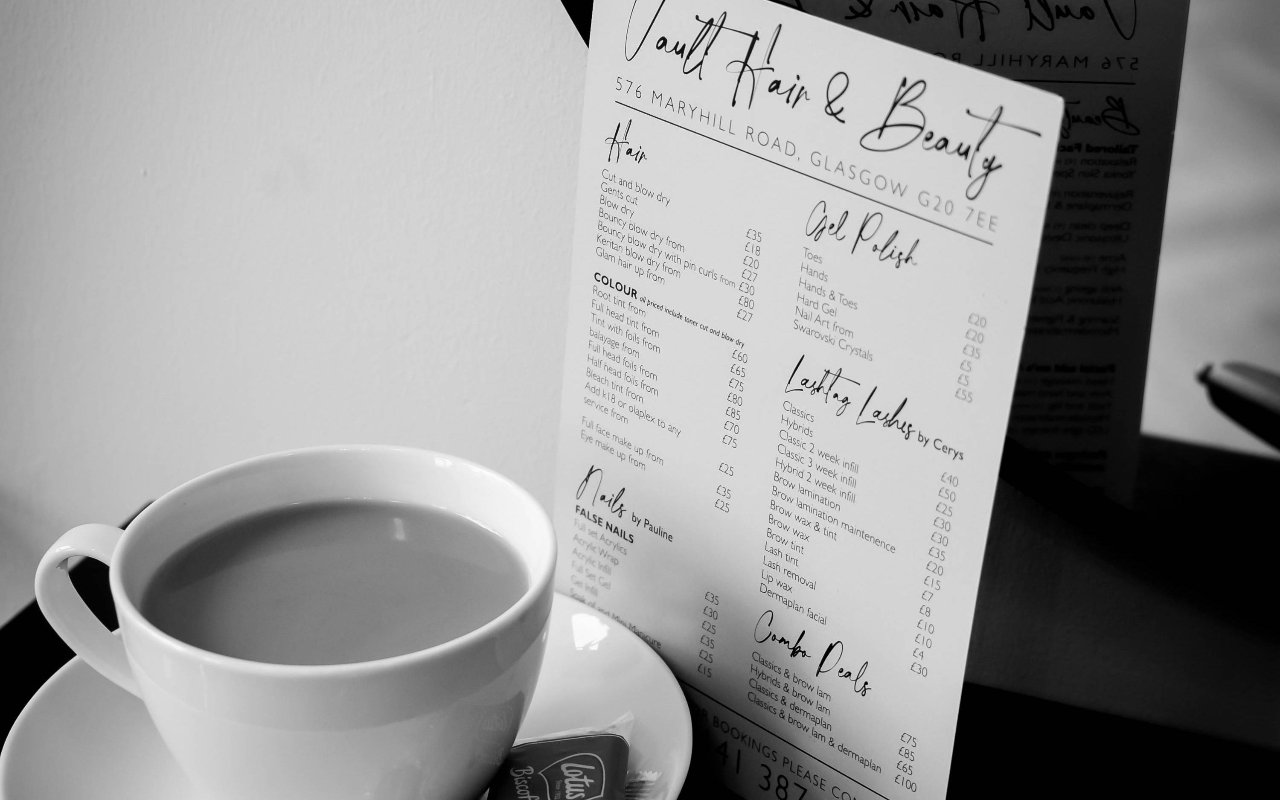 Vault Hair & Beauty
576 MARYHILL ROAD, GLASGOW G20 7EE
Hair
Cut and blow dry £35
Gents cut £18
Blow dry £20
Bouncy blow dry from £27
Bouncy blow dry with pin curls from £30
Keritan blow dry from £80
Glam hair up from £27
COLOUR all priced include toner cut and blow dry
Root tint from £60
Full head tint from £65
Tint with foils from £75
balayage from £80
Full head foils from £85
Half head foils from £70
Bleach tint from £75
Add k18 or olaplex to any
service from £25
Full face make up from £35
Eye make up from £25
Nails by Pauline
FALSE NAILS
Full set Acrylics £35
Acrylic Wrap £30
Acrylic Infill £25
Full Set Gel £35
Gel Infill £25
Soak off and Mini Manicure £15
Gel Polish
Toes £20
Hands £20
Hands & Toes £35
Hard Gel £5
Nail Art from £5
Swarovski Crystals £55
Lashtag Lashes by Cerys
Classics £40
Hybrids £50
Classic 2 week infill £25
Classic 3 week infill £30
Hybrid 2 week infill £30
Brow lamination £35
Brow lamination maintenence £20
Brow wax & tint £15
Brow wax £7
Brow tint £8
Lash tint £10
Lash removal £10
Lip wax £4
Dermaplan facial £30
Combo Deals
Classics & brow lam £75
Hybrids & brow lam £85
Classics & dermaplan £65
Classics & brow lam & dermaplan £100
BOOKINGS PLEASE
41 387
Lotus
Biscoff